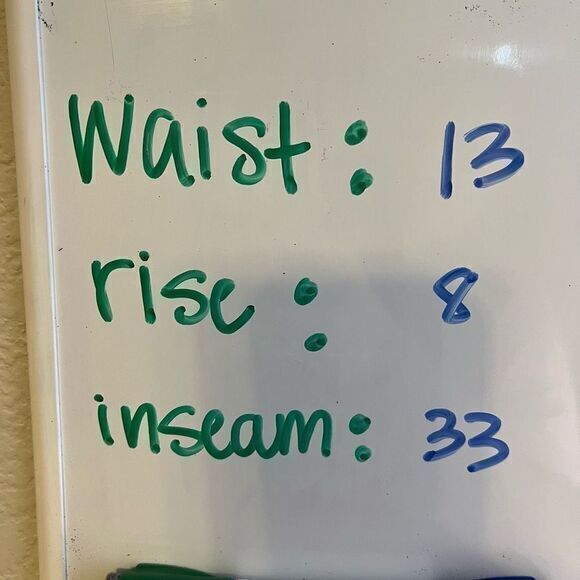 Waist: 13
rise: 8
inseam: 33